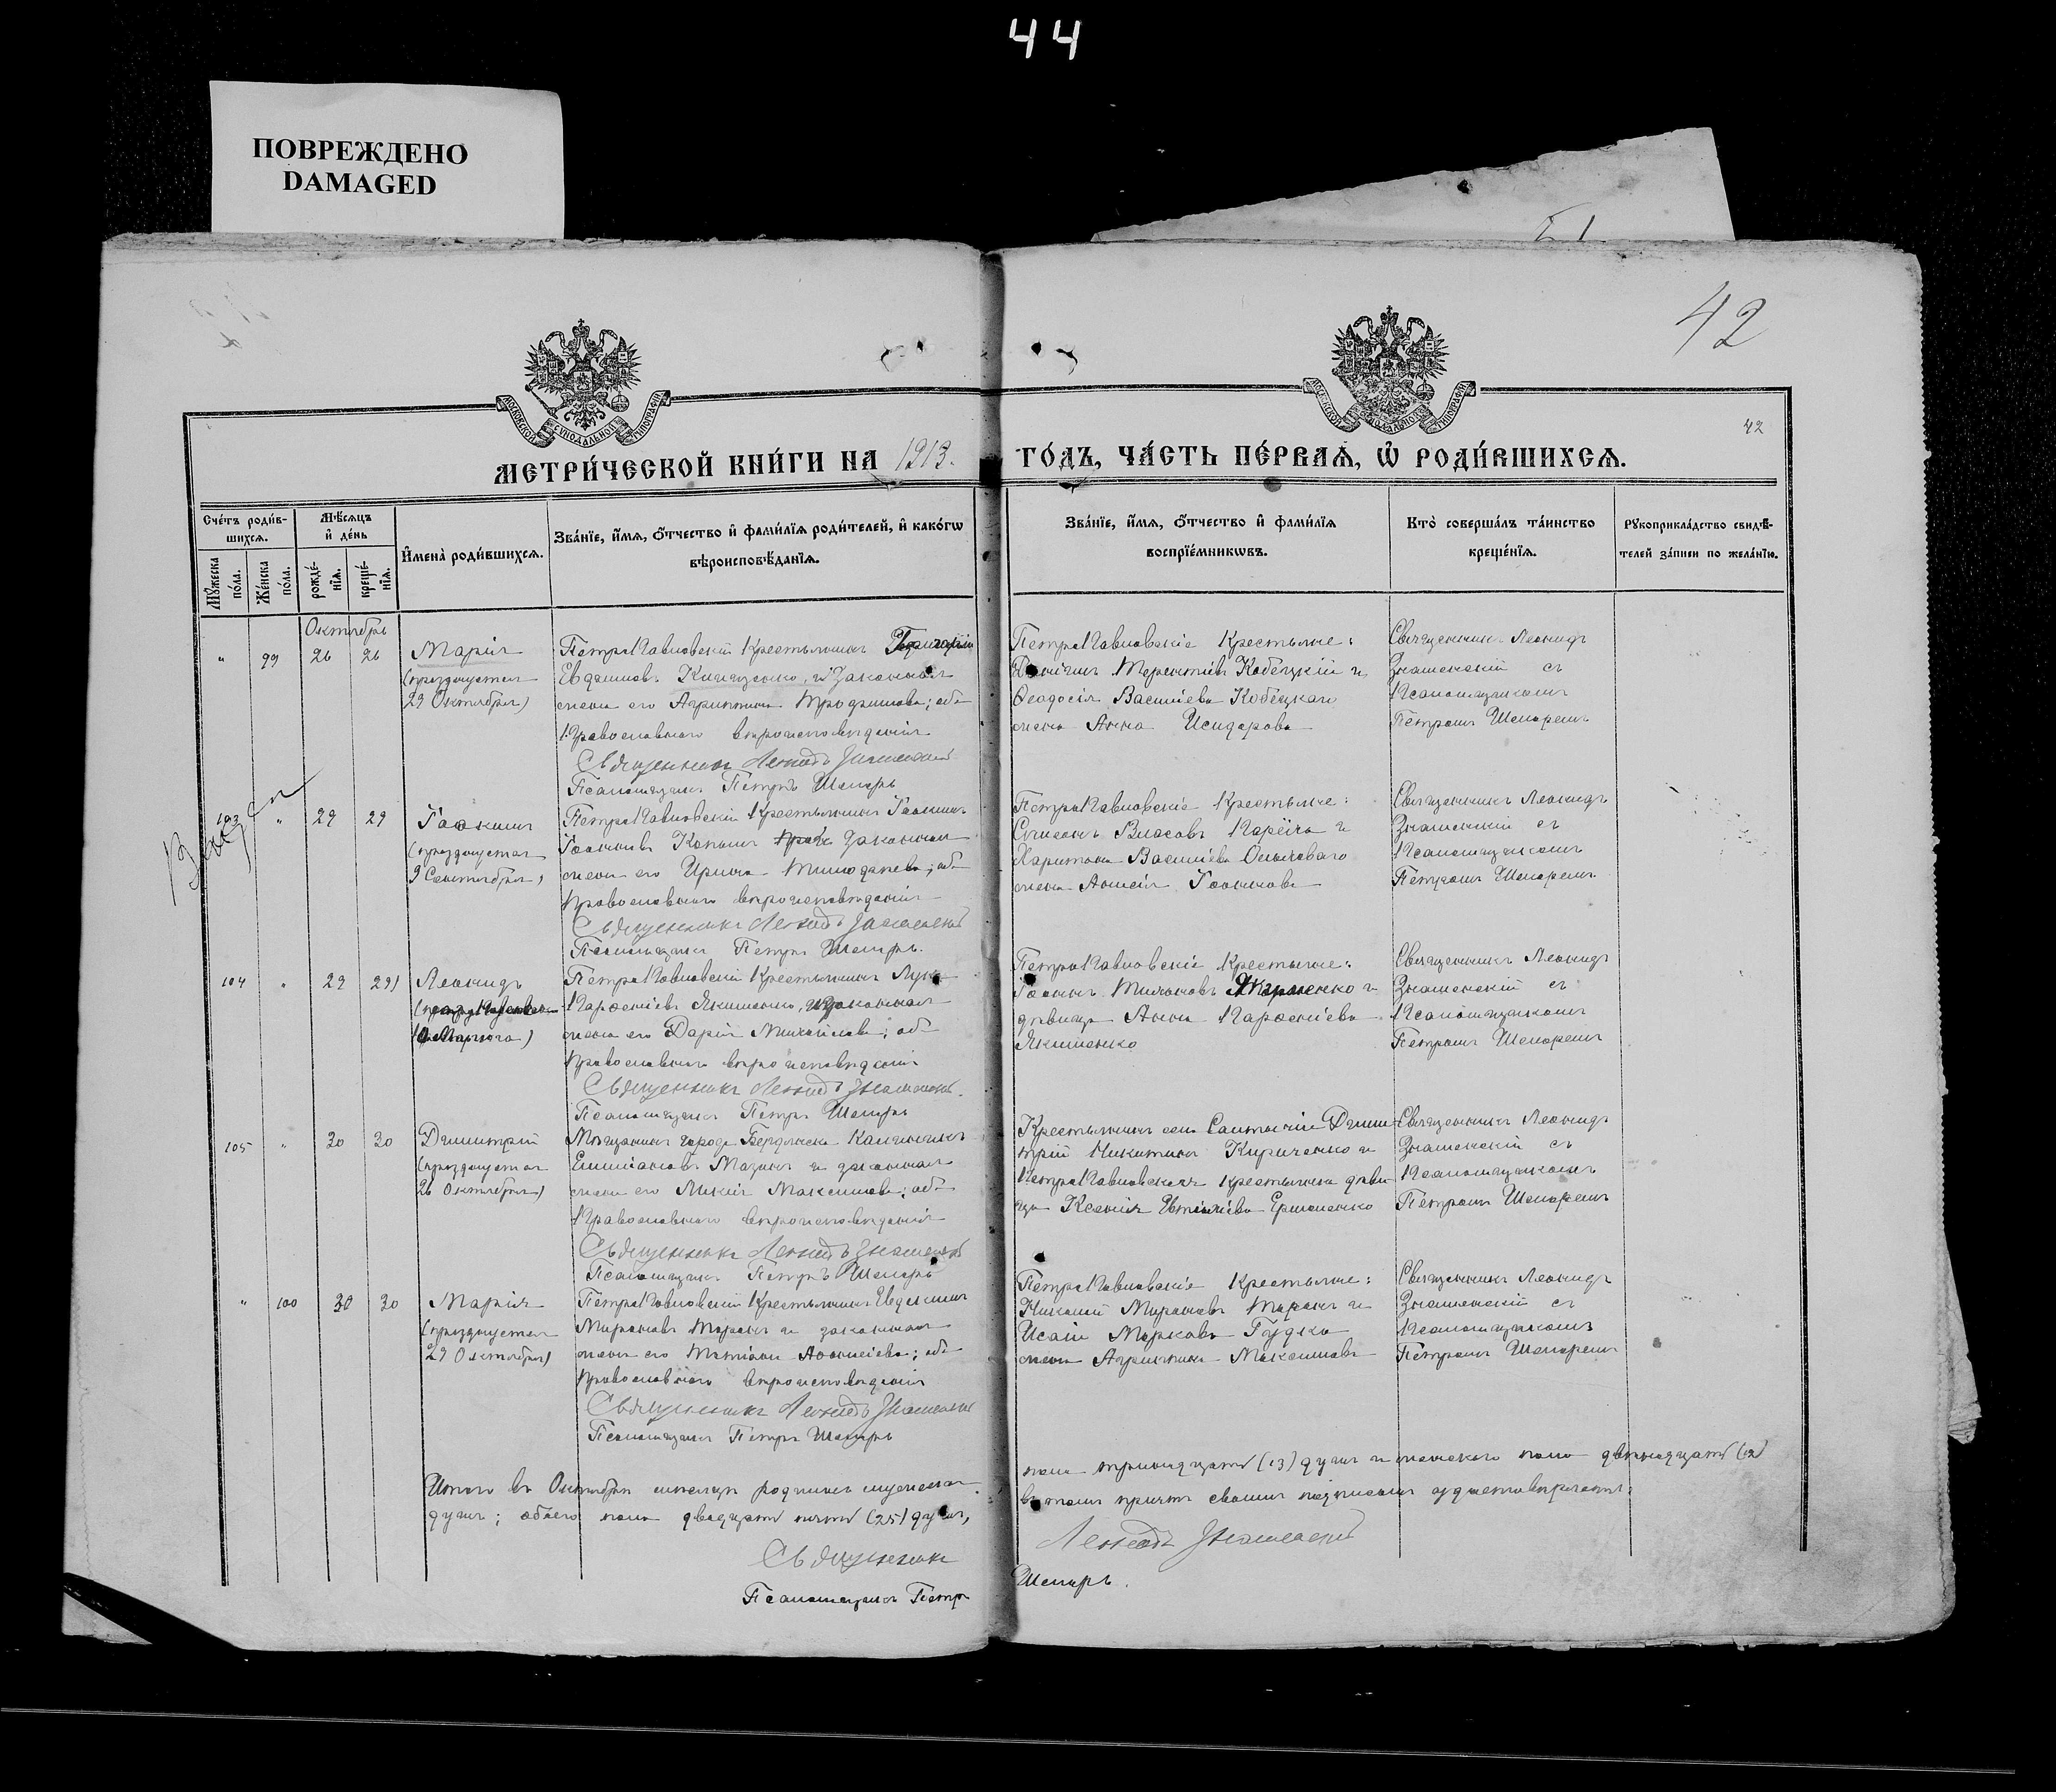 44
ПОВРЕЖДЕНО
DAMAGED
42
42
МОСКОВСКОЙ СѴНОДАЛЬНОЙ ТИПОГРАФІИ
МЕТРИ́ЧЕСКОЙ КНИ́ГИ НА 1913. ГО́ДЪ, ЧА́СТЬ ПЕ́РВАѦ, Ѡ҆ РОДИ́ВШИХСѦ.
Сче́тъ роди́в-
шихсѧ.
Мꙋ́жеска по́ла.
Же́нска по́ла.
Мѣ́сѧцъ
и҆ де́нь
рожде́-
нїѧ.
креще́-
нїѧ.
И҆мена̀ роди́вшихсѧ.
Зва́нїе, и҆́мѧ, ѻ҆́тчество и҆ фами́лїѧ роди́телей, и҆ како́гѡ
вѣроисповѣ́данїѧ.
Зва́нїе, и҆́мѧ, ѻ҆́тчество и҆ фами́лїѧ
воспрїе́мникѡвъ.
Кто̀ соверша́лъ та́инство
креще́нїѧ.
Рꙋкоприкла́дство свидѣ́-
телей за́писи по жела́нїю.
Октябрь
" 99 26 26 Марія
(празднуется
29 Октября)
Петро Павловскій Крестьянинъ Григорій
Евдокимовъ Кищенко, и законная
жена его Агриппина Трофимова; оба
Православнаго вѣроисповѣданія
Священникъ Леонидъ Знаменскій
Псаломщикъ Петръ Шепарь
Петро Павловскіе Крестьяне:
Терентіевъ Кобецкій и
Ѳеодосія Василіева Кобецкаго
жена Анна Исидорова
Священникъ Леонидъ
Знаменскій съ
Псаломщикомъ
Петромъ Шепаремъ
103 " 29 29 Іоакимъ
(празднуется
9 Сентября)
Петро Павловскій Крестьянинъ Іоакимъ
Іоанновъ законная
жена его Ирина оба
Православнаго вѣроисповѣданія
Священникъ Леонидъ Знаменскій
Псаломщикъ Петръ Шепарь.
Петро Павловскіе Крестьяне:
Власовъ и
Харитона Василіева
жена Іоаннова
Священникъ Леонидъ
Знаменскій съ
Псаломщикомъ
Петромъ Шепаремъ
104 " 29 29 Леонидъ
Петро Павловскій Крестьянинъ Лука
Парѳеніевъ Якименко, и законная
жена его Дарія Михайлова; оба
Православнаго вѣроисповѣданія
Священникъ Леонидъ Знаменскій.
Псаломщикъ Петръ Шепарь
Петро Павловскіе Крестьяне:
Іоаннъ и
дѣвица Анна Парѳеніева
Якименко
Священникъ Леонидъ
Знаменскій съ
Псаломщикомъ
Петромъ Шепаремъ
105 " 30 30 Димитрій
(празднуется
26 Октября)
Мѣщанинъ города Бердянска
Емиліановъ Мазинъ и законная
жена его Максимова; оба
Православнаго вѣроисповѣданія
Священникъ Леонидъ Знаменскій
Псаломщикъ Петръ Шепарь
Крестьянинъ села Салтычіи Дими-
трій Никитинъ Кириченко и
Петро Павловская крестьянка дѣви-
ца Ксенія Евтихіева Ермоленко
Священникъ Леонидъ
Знаменскій съ
Псаломщикомъ
Петромъ Шепаремъ
" 100 30 30 Марія
(празднуется
29 Октября)
Петро Павловскій Крестьянинъ Евдокимъ
Мироновъ Таранъ и законная
жена его Татіана Аѳанасіева; оба
Православнаго вѣроисповѣданія
Священникъ Леонидъ Знаменскій
Псаломщикъ Петръ Шепарь
Петро Павловскіе Крестьяне:
Николай Мироновъ Таранъ и
Исаіи Маркова Гудко
жена Агриппина Максимова
Священникъ Леонидъ
Знаменскій съ
Псаломщикомъ
Петромъ Шепаремъ
Итого въ Октябрѣ мѣсяцѣ родилось мужескаго пола тринадцать (13) душъ и женскаго пола двѣнадцать (12)
душъ; обоего пола двадцать пять (25) душъ, въ томъ причтъ своимъ подписомъ удостовѣряетъ:
Священникъ Леонидъ Знаменскій
Псаломщикъ Петръ Шепарь.